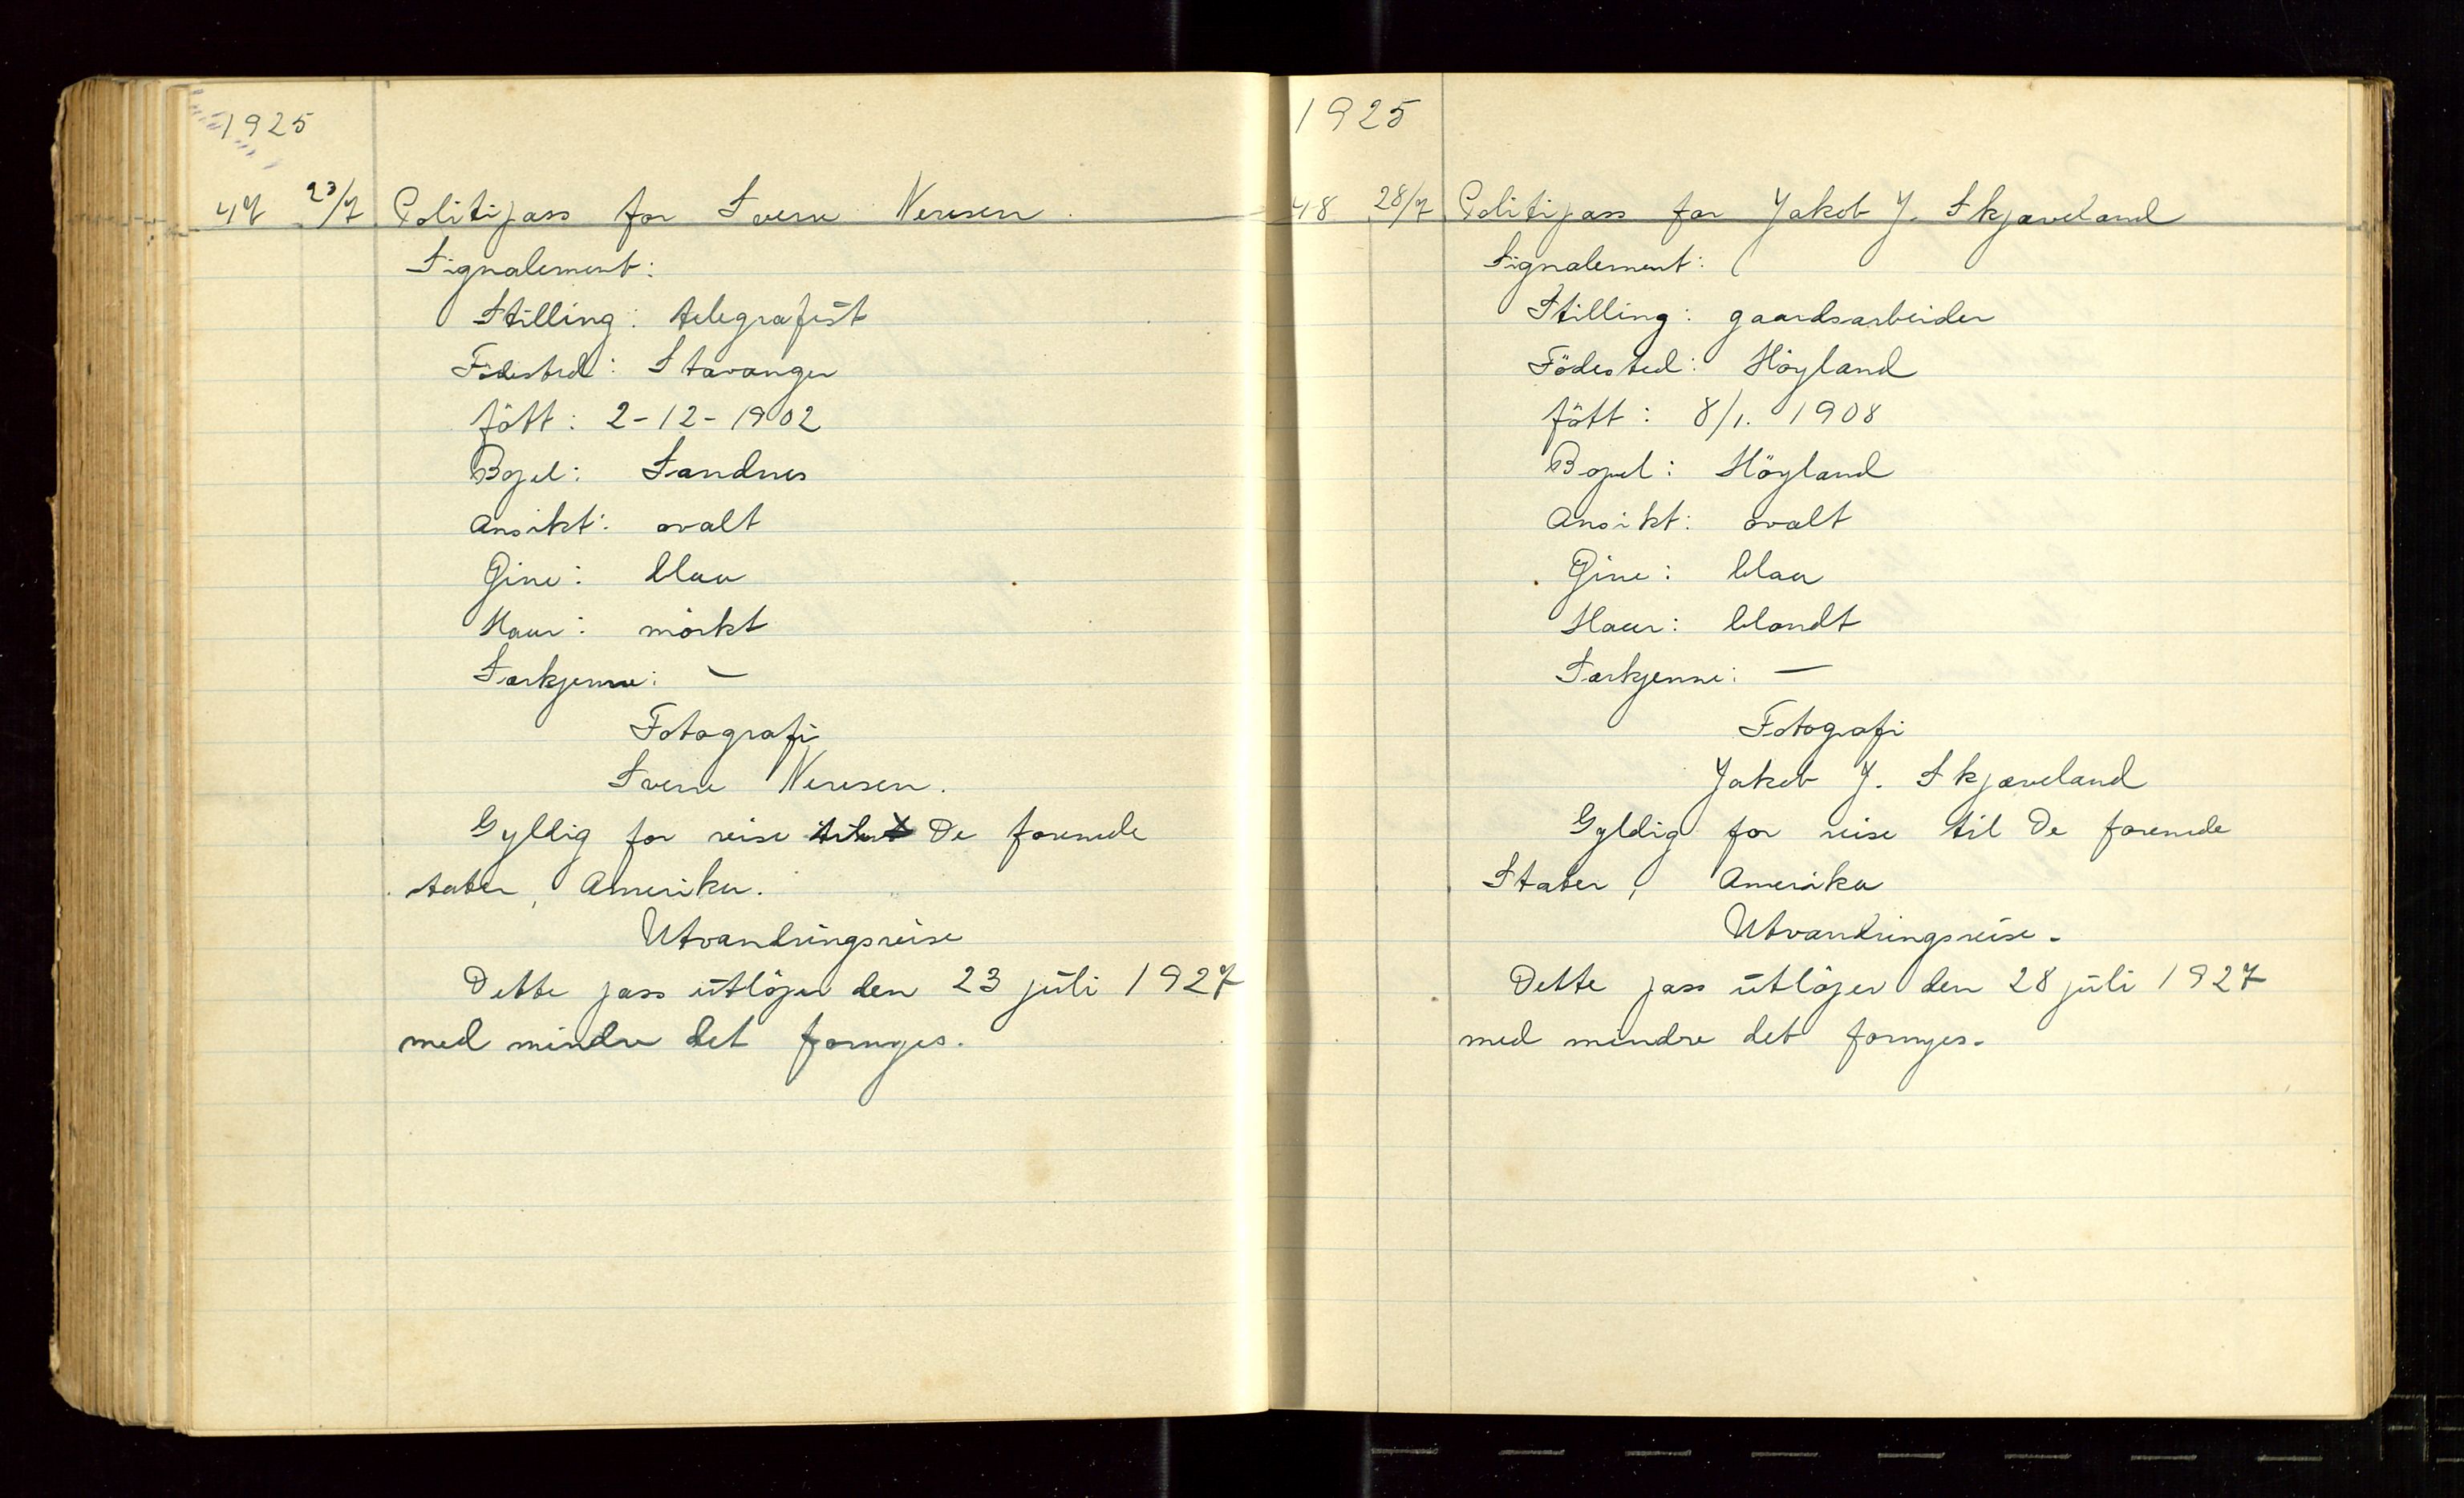 1925
47 23/7 Politipass for Sverre Neresen.
Signalement:
Stilling: telegrafist
Födested: Stavanger
född: 2-12-1902
Bopel: Sandnes
Ansikt: ovalt
Öine: blaa
Haar: mörkt
Særkjenne: —
Fotografi
Sverre Neresen.
Gyldig for reise De forenede
stater, Amerika.
Utvandringsreise
Dette pass utlöper den 23 juli 1927
med mindre det fornyes.
1925
48 28/7 Politipass for Jakob J. Skjæveland
Signalement:
Stilling: gaardsarbeider
Födested: Höyland
född: 8/1. 1908
Bopel: Höyland
Ansikt: ovalt
Öine: blaa
Haar: blondt
Særkjenne: —
Fotografi
Jakob J. Skjæveland
Gyldig for reise til De forenede
Stater, Amerika
Utvandringsreise.
Dette pass utlöper den 28 juli 1927
med mindre det fornyes.